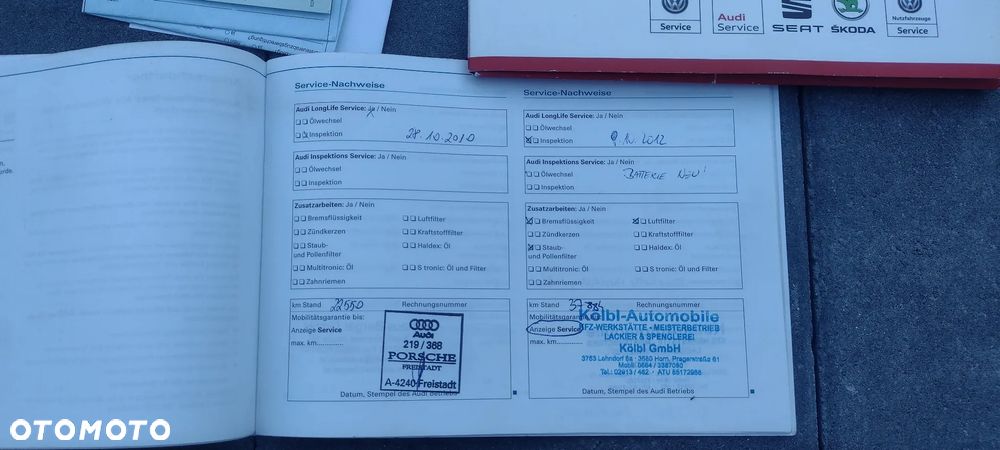 Service
Audi
Service
SEAT
ŠKODA
Nutzfahrzeuge
Service
Service-Nachweise
Audi LongLife Service: Ja / Nein
Ölwechsel
Inspektion
28.10.2010
Audi Inspektions Service: Ja / Nein
Ölwechsel
Inspektion
Zusatzarbeiten: Ja / Nein
Bremsflüssigkeit
Luftfilter
Zündkerzen
Kraftstofffilter
Staub-
und Pollenfilter
Haldex: Öl
Multitronic: Öl
S tronic: Öl und Filter
Zahnriemen
km Stand 22550
Rechnungsnummer
Mobilitätsgarantie bis:
Anzeige Service
max. km..............
Audi
219 / 368
PORSCHE
FREISTADT
A-4240 Freistadt
Datum, Stempel des Audi Betriebs
Service-Nachweise
Audi LongLife Service: Ja / Nein
Ölwechsel
Inspektion
9.10.2012
Audi Inspektions Service: Ja / Nein
Ölwechsel
BATTERIE NEU!
Inspektion
Zusatzarbeiten: Ja / Nein
Bremsflüssigkeit
Luftfilter
Zündkerzen
Kraftstofffilter
Staub-
und Pollenfilter
Haldex: Öl
Multitronic: Öl
S tronic: Öl und Filter
Zahnriemen
km Stand
Rechnungsnummer
Mobilitätsgarantie
Anzeige Service
max. km
Kölbl-Automobile
KFZ-WERKSTÄTTE - MEISTERBETRIEB
LACKIER & SPENGLEREI
Kölbl GmbH
3753 Lohndorf 6a - 3580 Horn, Pragerstraße 61
Mobil: 0664 / 3387080
Tel.: 02913 / 462 - ATU 65172966
Datum, Stempel des Audi Betriebs
OTOMOTO